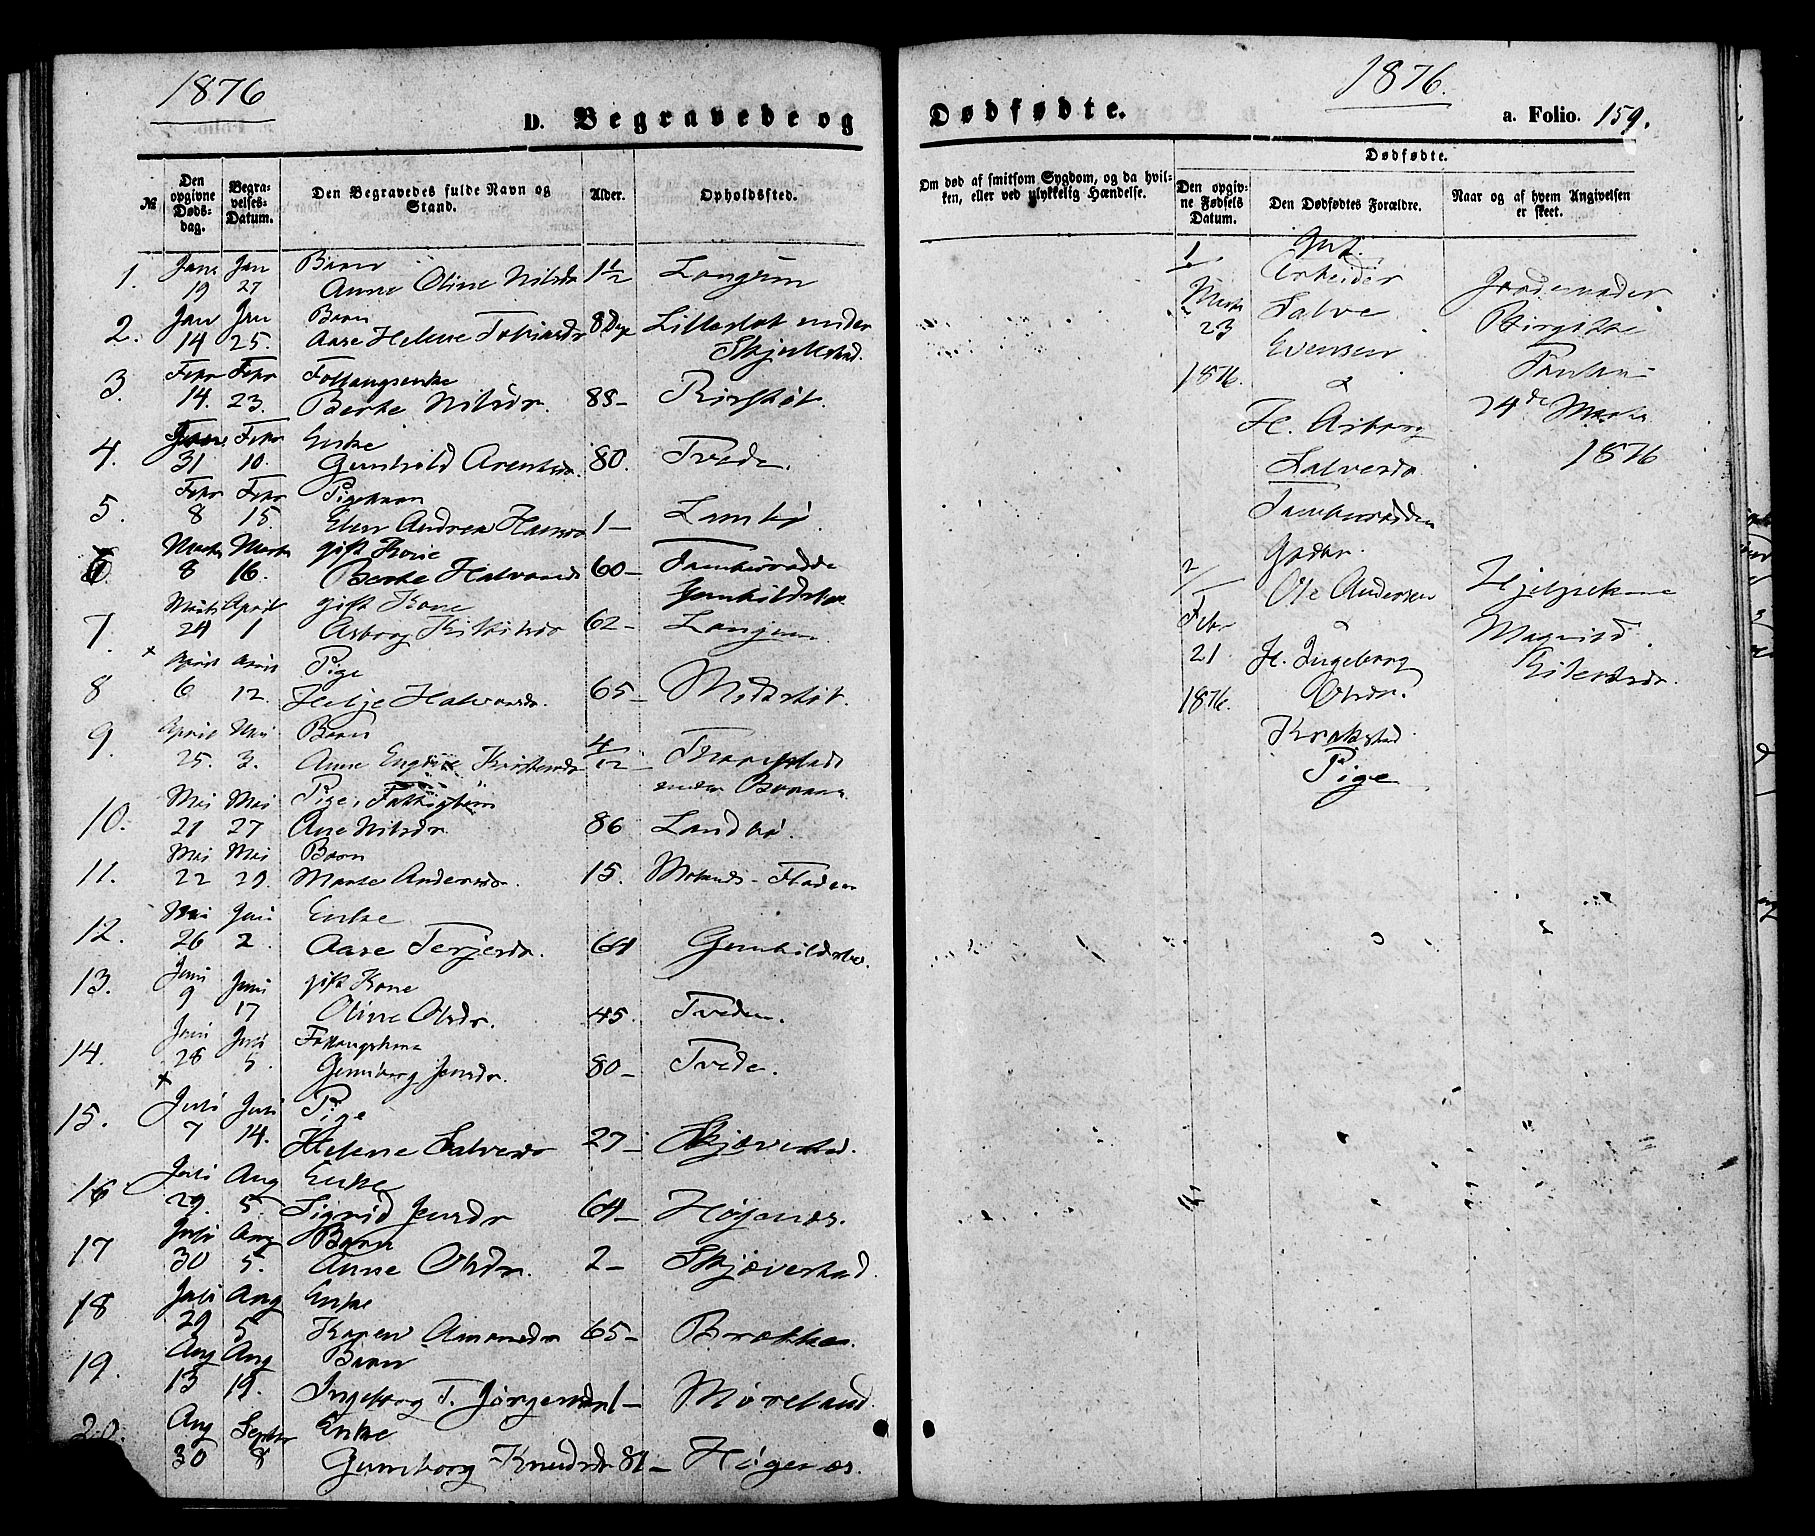 1876
D. Begravede og
№
Den opgivne Dødsdag.
Begravelses-Datum.
Den Begravedes fulde Navn og Stand.
Alder.
Opholdssted.
1. Jan 19 Jan 27 Barn Anne Oline Nilsdr 1½ Langum
2. Jan 14 Jan 25. Barn Aase Helene 8 Dage Lilleslot under
3. Febr 14. Febr 23. Berte Nilsdr. 88–
4. Jan 31 Febr 10. Enke Gunhild Arentsdr. 80. Tvede.
5. Febr 8 Febr 15. Pigebarn Ellen Andrea Hansdr 1– Landbø.
6 Marts 8 Marts 16. gift Kone Berte Halvorsdr 60–
7. Marts 24 April 1 gift Kone Asborg 62– Langum
8 April 6 April 12. Pige Helje Halvorsdr. 65–
9. April 25. Mai 3. Barn Anne Kristensdr 4/12 under
10. Mai 21 Mai 27 Pige, Aase Nilsdr. 86 Landbø.
11. Mai 22 Mai 29. Barn Marte Andersdr. 15.
12. Mai 26 Juni 2 Enke Aase Terjesdr. 64
13. Juni 9 Juni 17 gift Kone Oline Olsdr. 45. Tveden.
14. Juni 28 Juli 5. Gunborg Jensdr. 80– Tvede.
15. Juli 7 Juli 14. Pige Helene Salvesdr 27– Skjævestad.
16 Juli 29. Aug 5. Enke Sigrid Jensdr 64– Højenæs.
17 Juli 30 Aug 5. Barn Anne Olsdr. 2– Skjævestad.
18 Juli 29 Aug 5 Enke Karen 65– Brække.
19. Aug 13 Aug 19. Barn Ingeborg T. Jørgensdr 1– Møreland.
20. Aug 30 Septbr 8 Enke Gunborg Knudsdr 81– Høgenæs.
1876.
Dødfødte.
a. Folio. 159.
Om død af smitsom Sygdom, og da hvilken, eller ved ulykkelig Hændelse.
Dødfødte.
Den opgivne Fødsels Datum.
Den Dødfødtes Forældre.
Naar og af hvem Angivelsen er skeet.
1
Marts
23
1876.
Gut.
Arbeider
Salve
Evensen
&
H. Asborg
Salvesdr
Jordemoder
24de Marts
1876
2
Febr
21
1876.
Ole Andersen
&
H. Ingeborg
Olsdr.
Krokstad.
Pige
Hjelpekone
Magnild